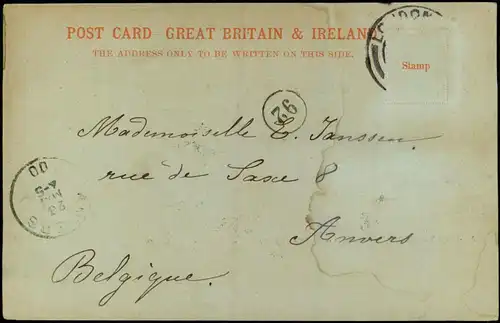 POST CARD GREAT BRITAIN & IRELAND
THE ADDRESS ONLY TO BE WRITTEN ON THIS SIDE.
LONDON
Stamp
92
Mademoiselle E. Janssen
rue de Saxe 8
Anvers
Belgique.
4-5
23
00